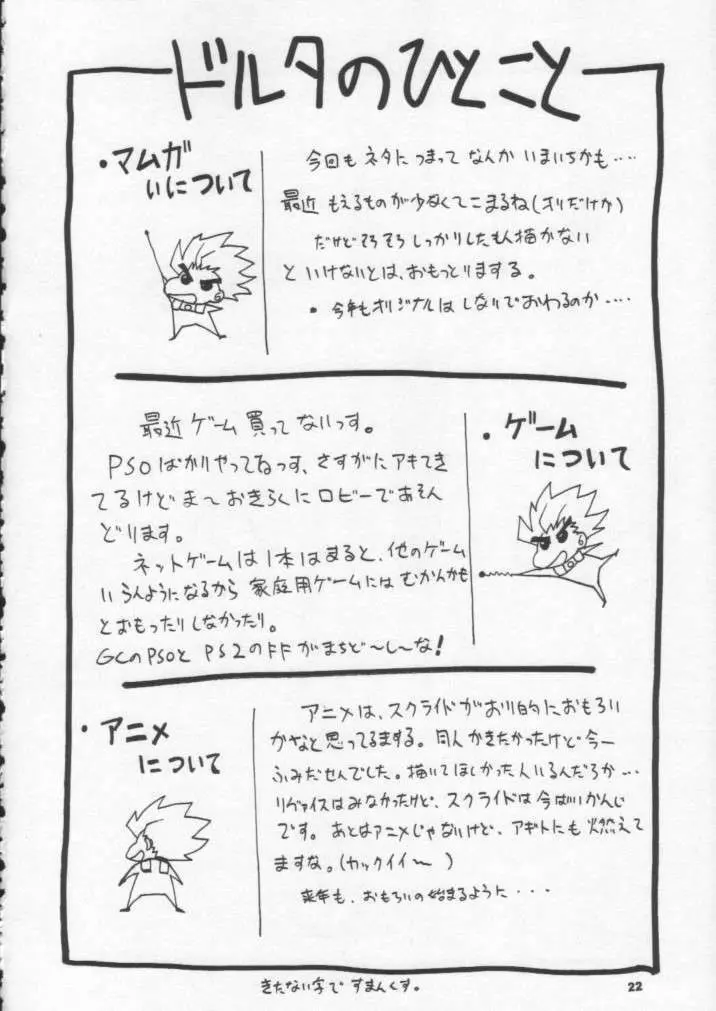 ドルタのひとこと
・マムガ
いについて
今回も ネタに つまって なんか いまいちかも・・・・
最近 もえるものが少なくて こまるね(オリだけか)
だけど そろそろ しっかりしたもん描かない
と いけないとは、おもっとりまする。
・今年もオリジナルは しないでおわるのか・・・・
・ゲーム
について
最近 ゲーム 買って ないっす。
PSOばかりやってるっす、さすがに アキてき
てるけど ま〜 おきらくに ロビーで あそん
どります。
ネットゲームは1本はまると、他のゲーム
いらんようになるから 家庭用ゲームには むかんかも
とおもったりしなかったり。
GCのPSOと PS2のFFがまちど〜し〜な!
・アニメ
について
アニメは、スクライドがおり的におもろい
かなと思ってるまする。同人かきたかったけど今一
ふみだせんでした。描いてほしかった人いるんだろか・・・
リヴァイスはみなかったけど、スクライドは今ばいかんじ
です。あとはアニメじゃないけど、アギトにも 燃えて
ますな。(カックイイ〜)
来年も、おもろいの始まるように・・・
きたない字で すまんくす。
22